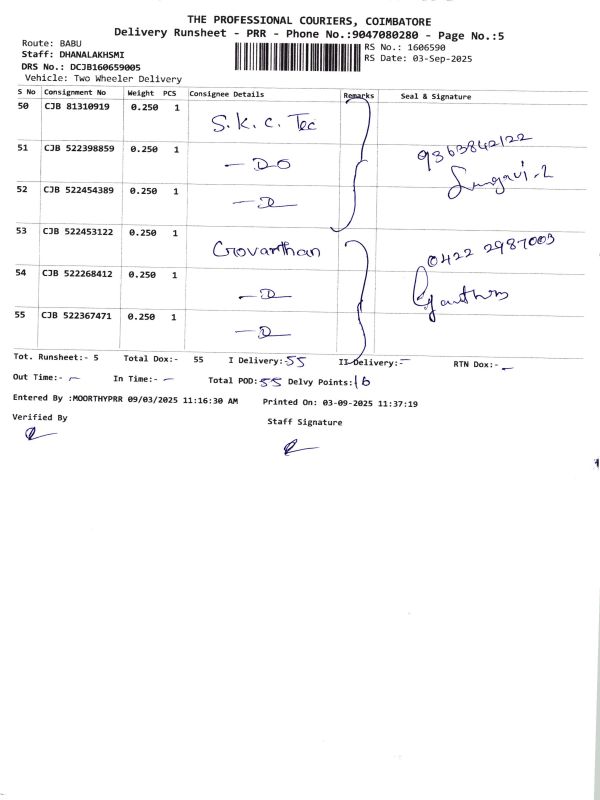 THE PROFESSIONAL COURIERS, COIMBATORE
Delivery Runsheet - PRR - Phone No.:9047080280 - Page No.:5
Route: BABU
Staff: DHANALAKHSMI
DRS No.: DCJB160659005
Vehicle: Two Wheeler Delivery
RS No.: 1606590
RS Date: 03-Sep-2025
S No Consignment No Weight PCS Consignee Details Remarks Seal & Signature
50 CJB 81310919 0.250 1 S.K.C. Tec
51 CJB 522398859 0.250 1 - DO 9363842122
52 CJB 522454389 0.250 1 - D
53 CJB 522453122 0.250 1 Govarthan 0422 2987003
54 CJB 522268412 0.250 1 - D
55 CJB 522367471 0.250 1 - D
Tot. Runsheet:- 5 Total Dox:- 55 I Delivery:-55 II Delivery:- RTN Dox:-
Out Time:- In Time:- Total POD:55 Delvy Points:16
Entered By :MOORTHYPRR 09/03/2025 11:16:30 AM Printed On: 03-09-2025 11:37:19
Verified By
Staff Signature